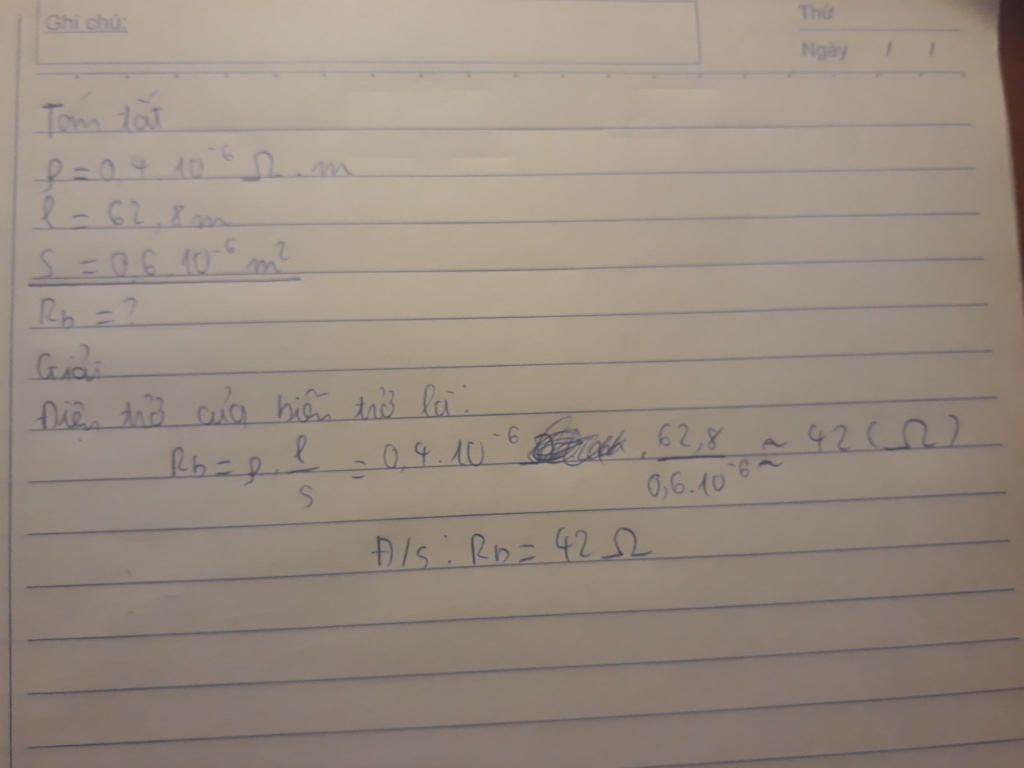 Ghi chú:
Thứ
Ngày / /
Tóm tắt
ρ = 0,4.10⁻⁶ Ω.m
l = 62,8m
S = 0,6.10⁻⁶ m²
Rb = ?
Giải
Điện trở của biến trở là:
Rb = ρ. l/S = 0,4.10⁻⁶ . 62,8/0,6.10⁻⁶ ≈ 42 (Ω)
Đ/s: Rb = 42 Ω